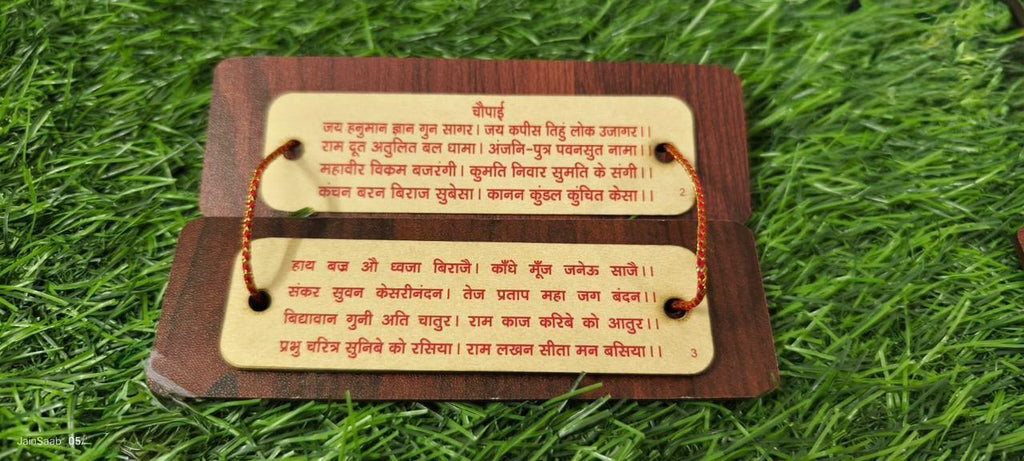 चौपाई
जय हनुमान ज्ञान गुन सागर। जय कपीस तिहुं लोक उजागर।।
राम दूत अतुलित बल धामा। अंजनि-पुत्र पवनसुत नामा।।
महावीर विक्रम बजरंगी। कुमति निवार सुमति के संगी।।
कंचन बरन बिराज सुबेसा। कानन कुंडल कुंचित केसा।।
2
हाथ बज्र औ ध्वजा बिराजै। काँधे मूँज जनेऊ साजै।।
संकर सुवन केसरीनंदन। तेज प्रताप महा जग बंदन।।
बिद्यावान गुनी अति चातुर। राम काज करिबे को आतुर।।
प्रभु चरित्र सुनिबे को रसिया। राम लखन सीता मन बसिया।।
3
JainSaab 05